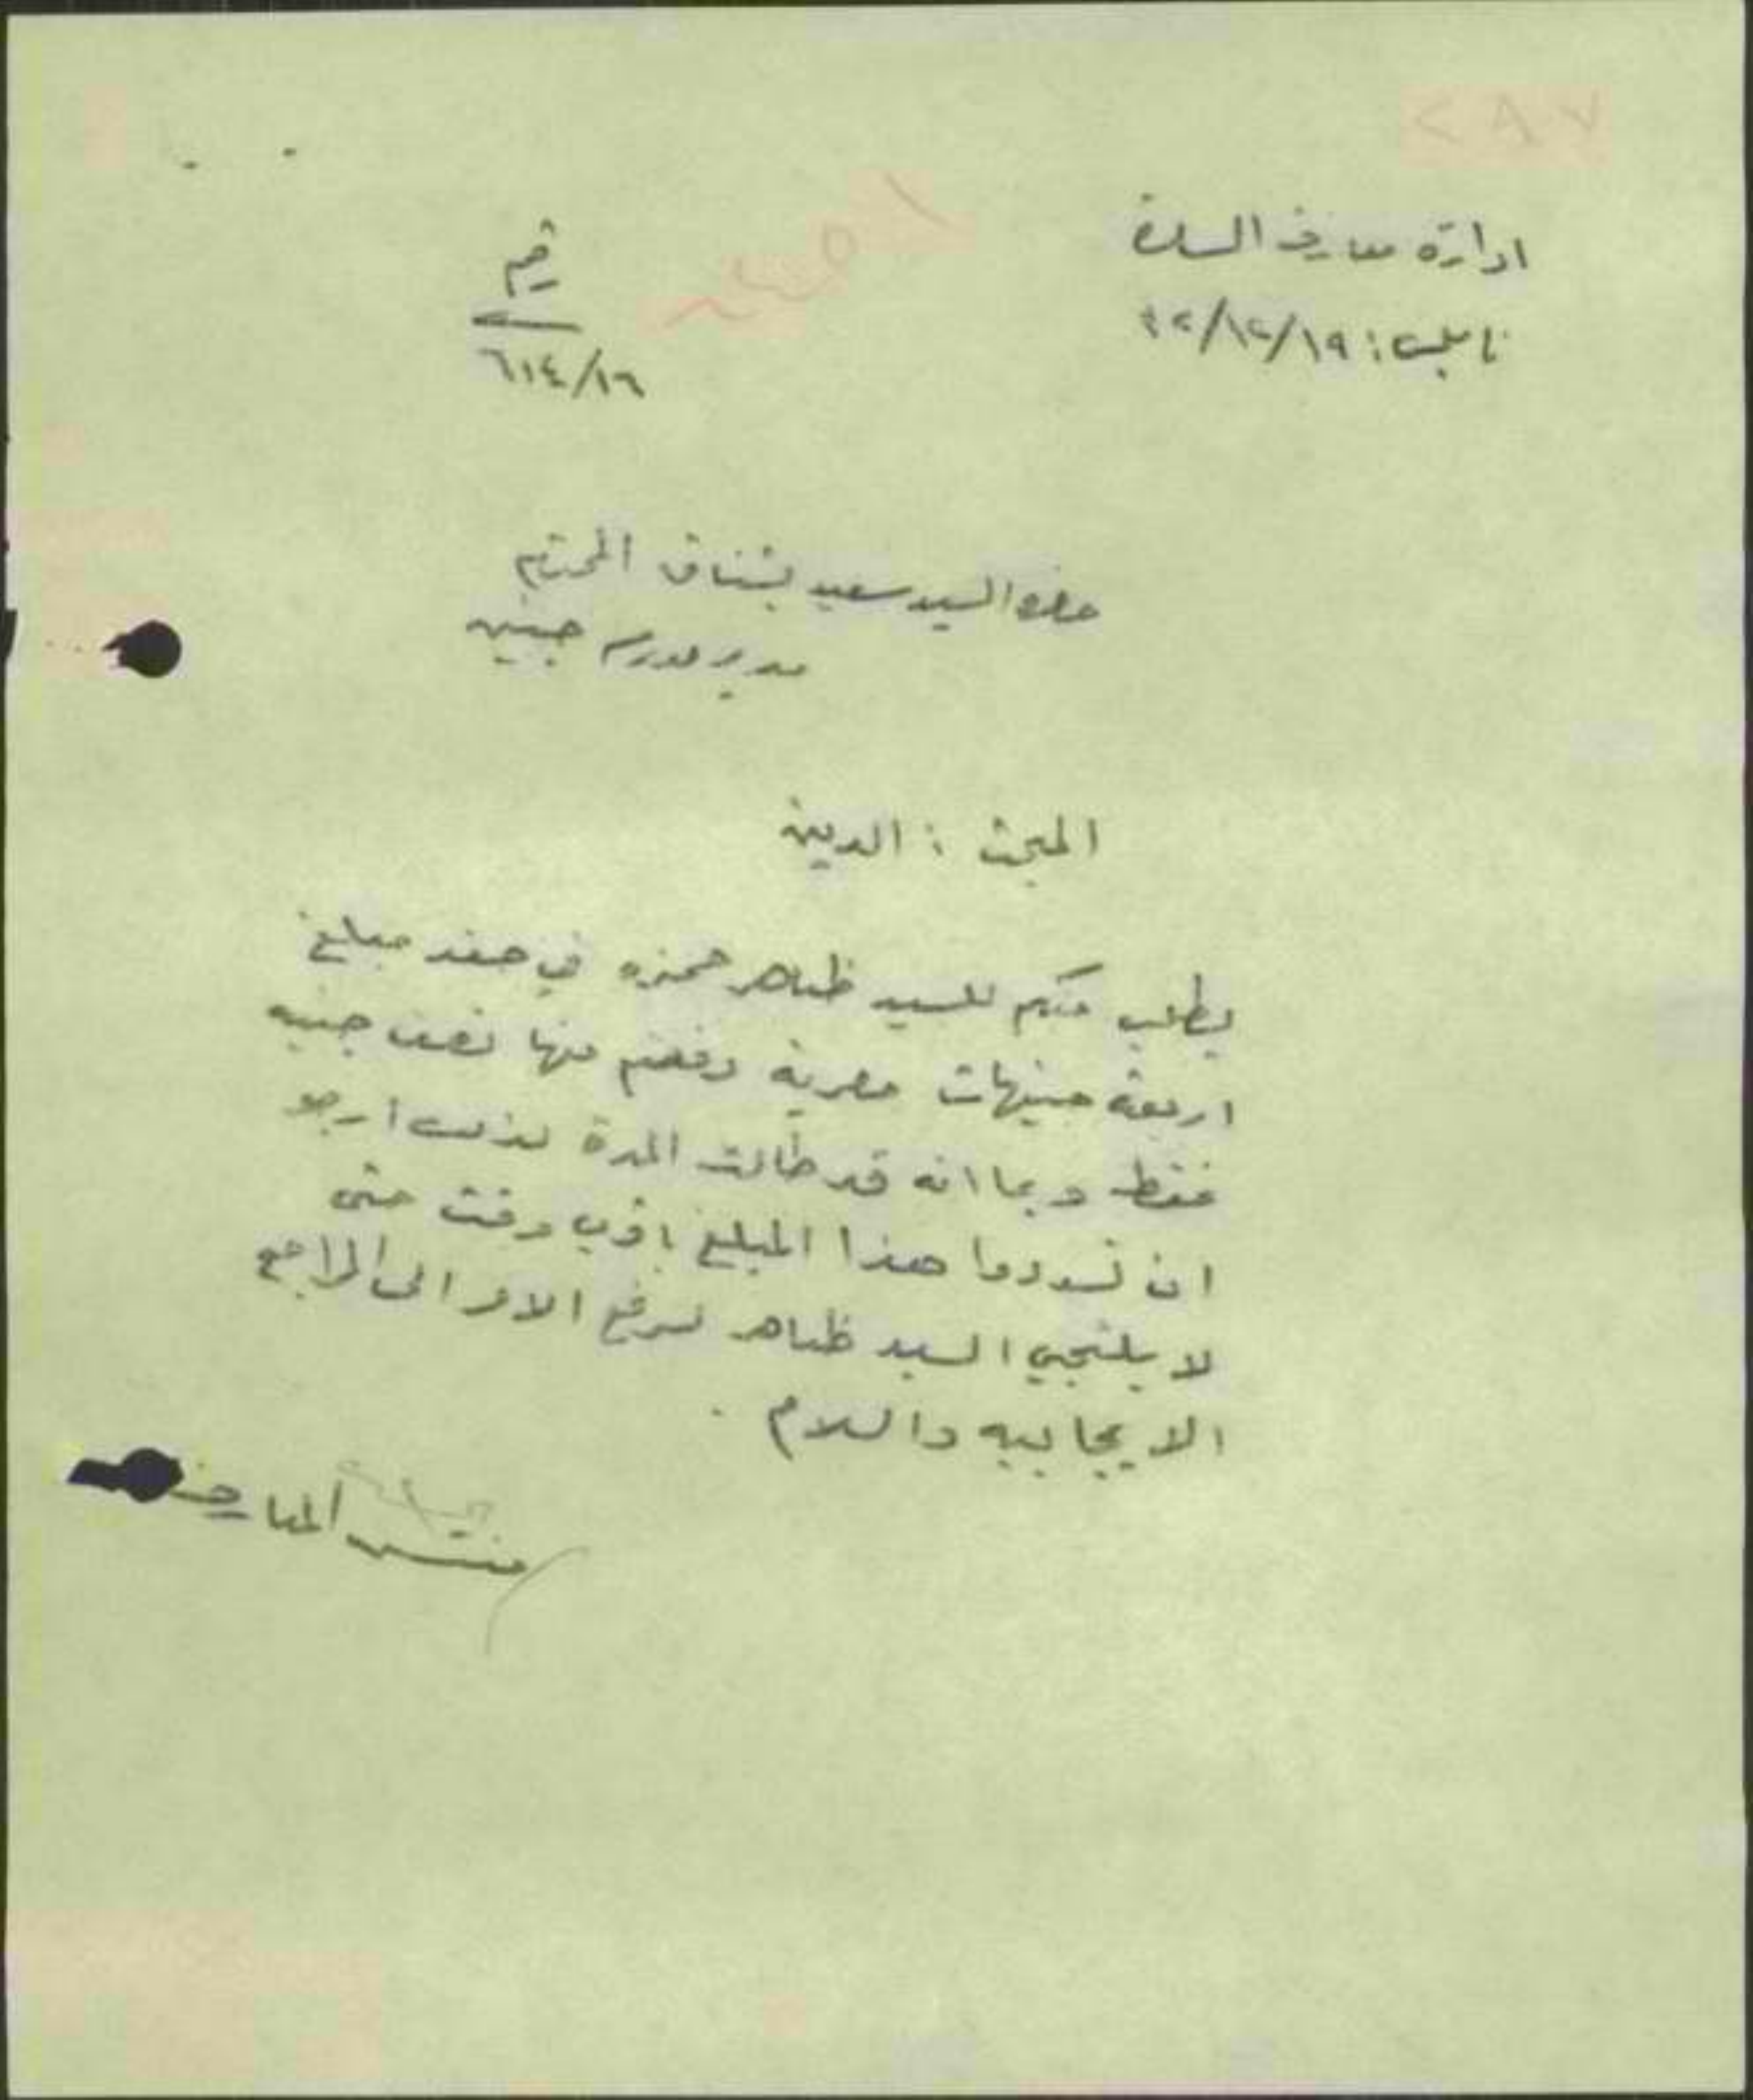 ٢٨٧
ادارة معارف السامرة
نابلس: ١٩/١٢/٢٢
رقم
٦١٤/١٦
حضرة السيد سعيد بشناق المحترم
مدير مدرسة جنين
المبحث : الدين
يطلب منكم للسيد ظاهر حمزه في صفد مبلغ
اربعة جنيهات مصرية دفعتم منها نصف جنيه
فقط وبما انه قد طالت المدة لذلك ارجو
ان تسددوا هذا المبلغ باقرب وقت حتى
لا يلتجئ السيد ظاهر لرفع الامر الى المراجع
الايجابيه والسلام .
مفتش المعارف